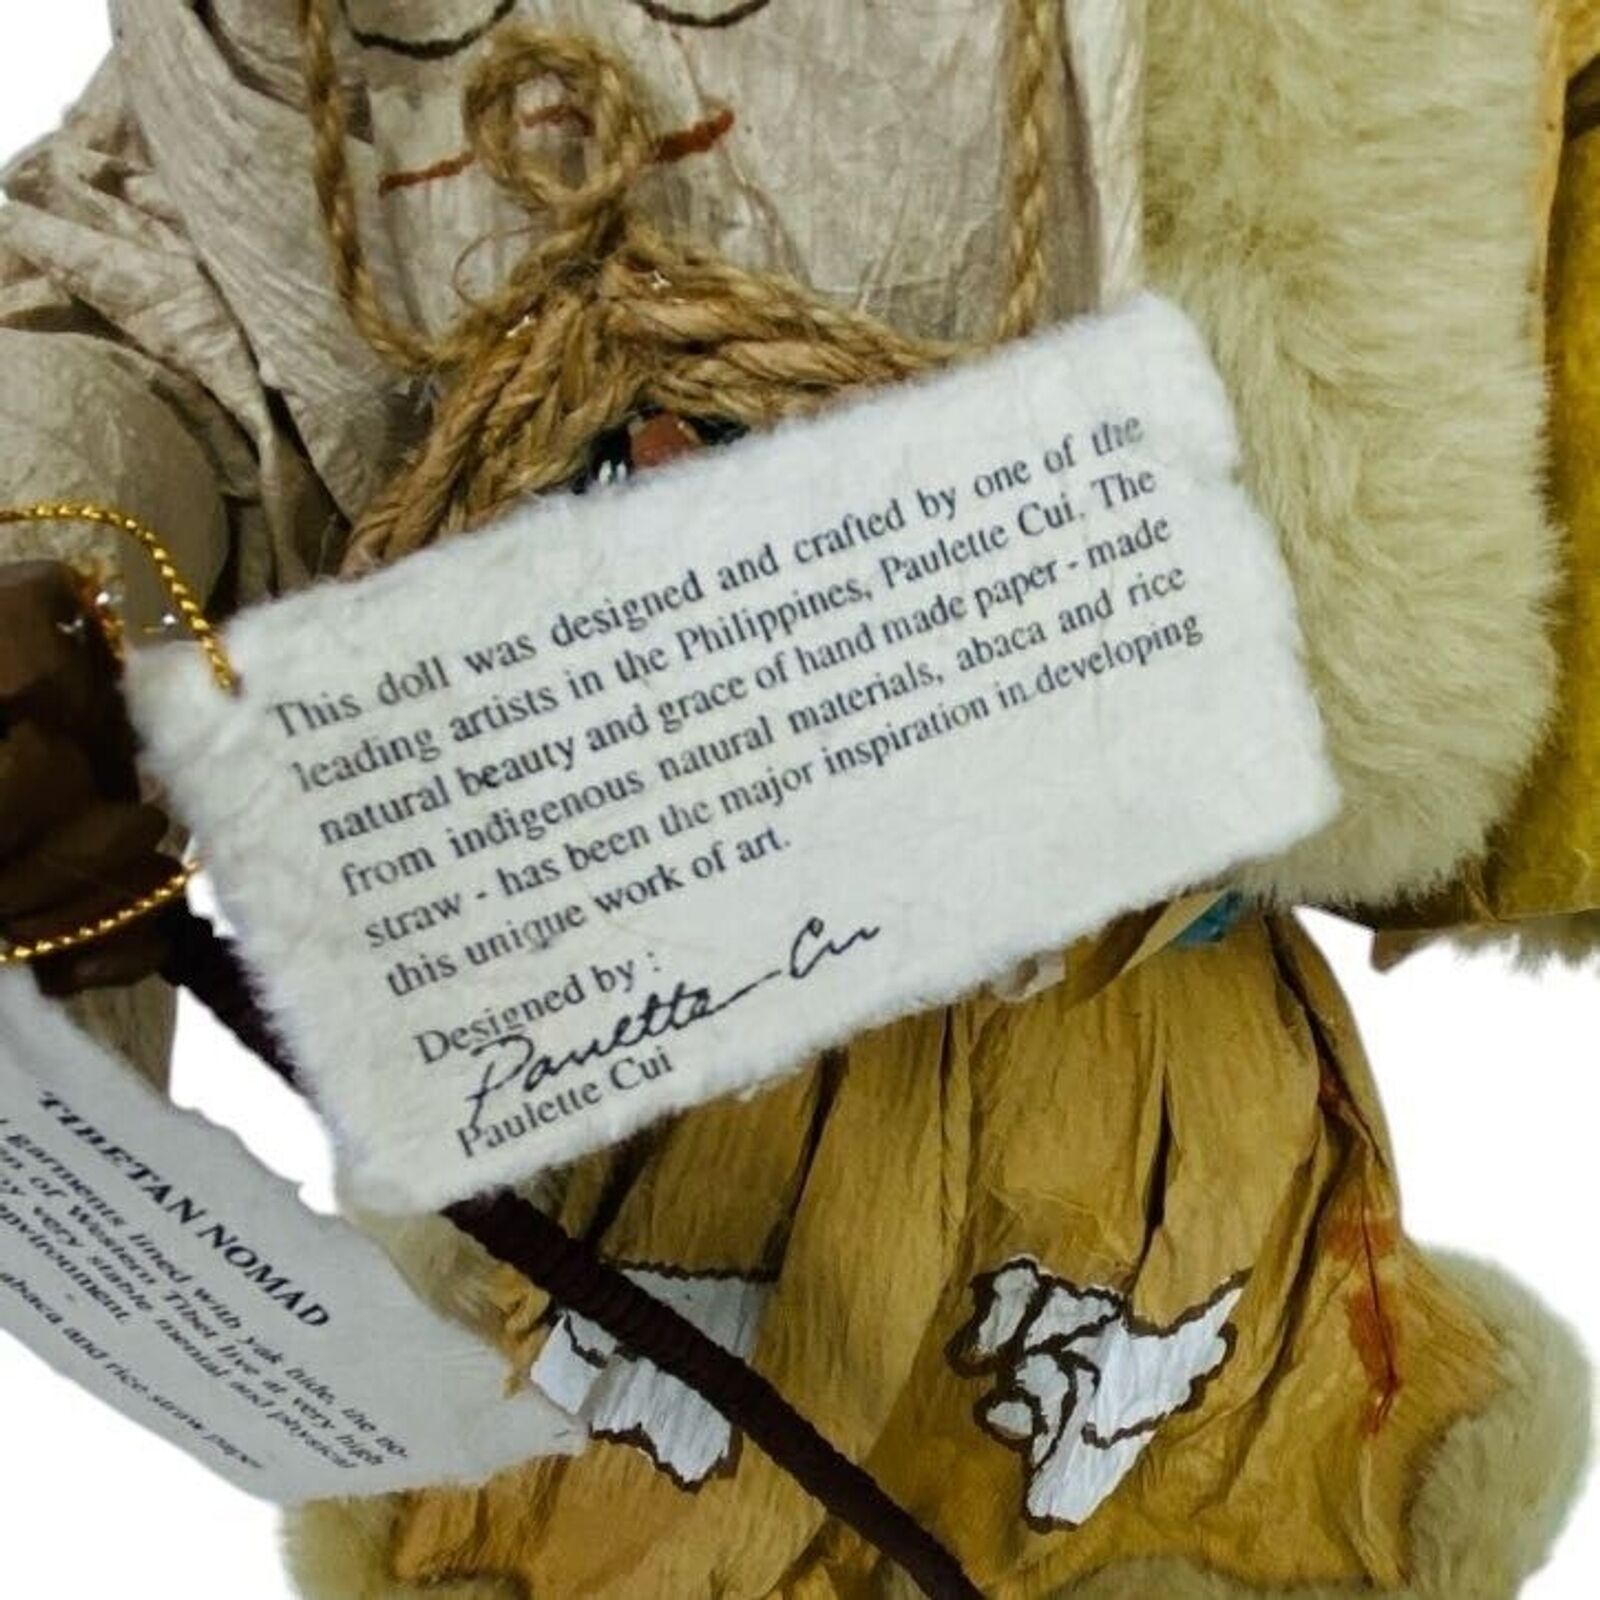 This doll was designed and crafted by one of the
leading artists in the Philippines, Paulette Cui. The
natural beauty and grace of hand made paper - made
from indigenous natural materials, abaca and rice
straw - has been the major inspiration in developing
this unique work of art.
Designed by :
Paulette Cui
Paulette Cui
TIBETAN NOMAD
garments lined with yak hide, the no-
or Western Tibet live at very high
by very stable mental and physical
environment.
abaca and rice straw paper